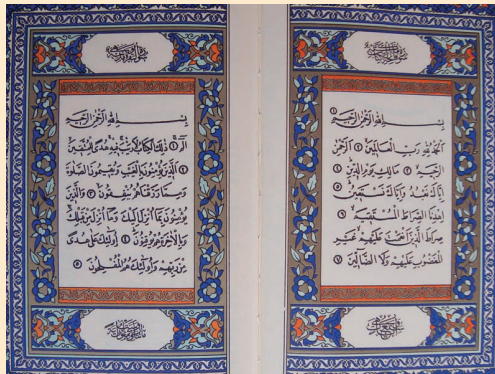 سورة الفاتحة
بِسْمِ اللَّهِ الرَّحْمَٰنِ الرَّحِيمِ ١
الْحَمْدُ لِلَّهِ رَبِّ الْعَالَمِينَ ٢ الرَّحْمَٰنِ
الرَّحِيمِ ٣ مَالِكِ يَوْمِ الدِّينِ ٤
إِيَّاكَ نَعْبُدُ وَإِيَّاكَ نَسْتَعِينُ ٥
اهْدِنَا الصِّرَاطَ الْمُسْتَقِيمَ ٦
صِرَاطَ الَّذِينَ أَنْعَمْتَ عَلَيْهِمْ غَيْرِ
الْمَغْضُوبِ عَلَيْهِمْ وَلَا الضَّالِّينَ ٧
سورة البقرة
بِسْمِ اللَّهِ الرَّحْمَٰنِ الرَّحِيمِ
الٓمٓ ١ ذَٰلِكَ الْكِتَابُ لَا رَيْبَ فِيهِ هُدًى لِلْمُتَّقِينَ
٢ الَّذِينَ يُؤْمِنُونَ بِالْغَيْبِ وَيُقِيمُونَ الصَّلَاةَ
وَمِمَّا رَزَقْنَاهُمْ يُنْفِقُونَ ٣ وَالَّذِينَ
يُؤْمِنُونَ بِمَا أُنْزِلَ إِلَيْكَ وَمَا أُنْزِلَ مِنْ قَبْلِكَ
وَبِالْآخِرَةِ هُمْ يُوقِنُونَ ٤ أُولَٰئِكَ عَلَىٰ هُدًى
مِنْ رَبِّهِمْ وَأُولَٰئِكَ هُمُ الْمُفْلِحُونَ ٥